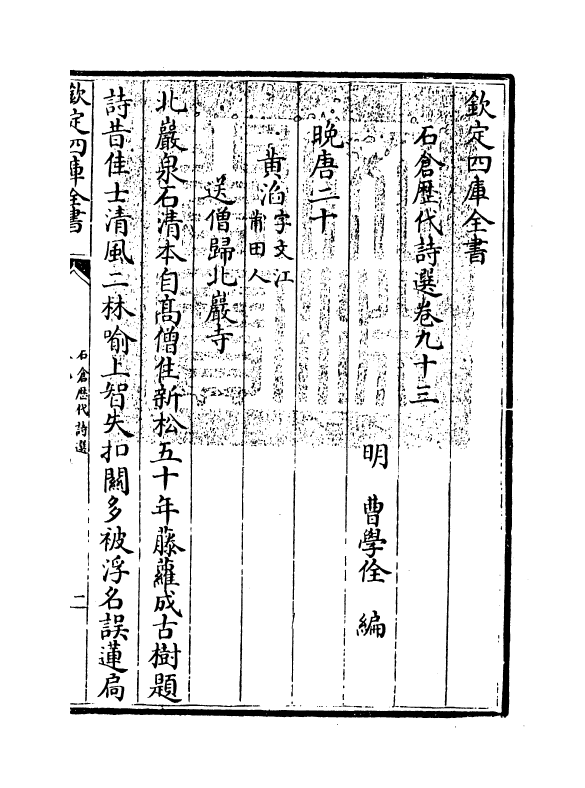 欽定四庫全書
石倉歷代詩選卷九十三
明 曹學佺 編
晚唐二十
黄滔 字文江
莆田人
送僧歸北巖寺
北巖泉石清本自高僧住新松五十年藤蘿成古樹題
詩昔佳士清風二林喻上智失扣關多被浮名誤蓮扃
欽定四庫全書
石倉歷代詩選